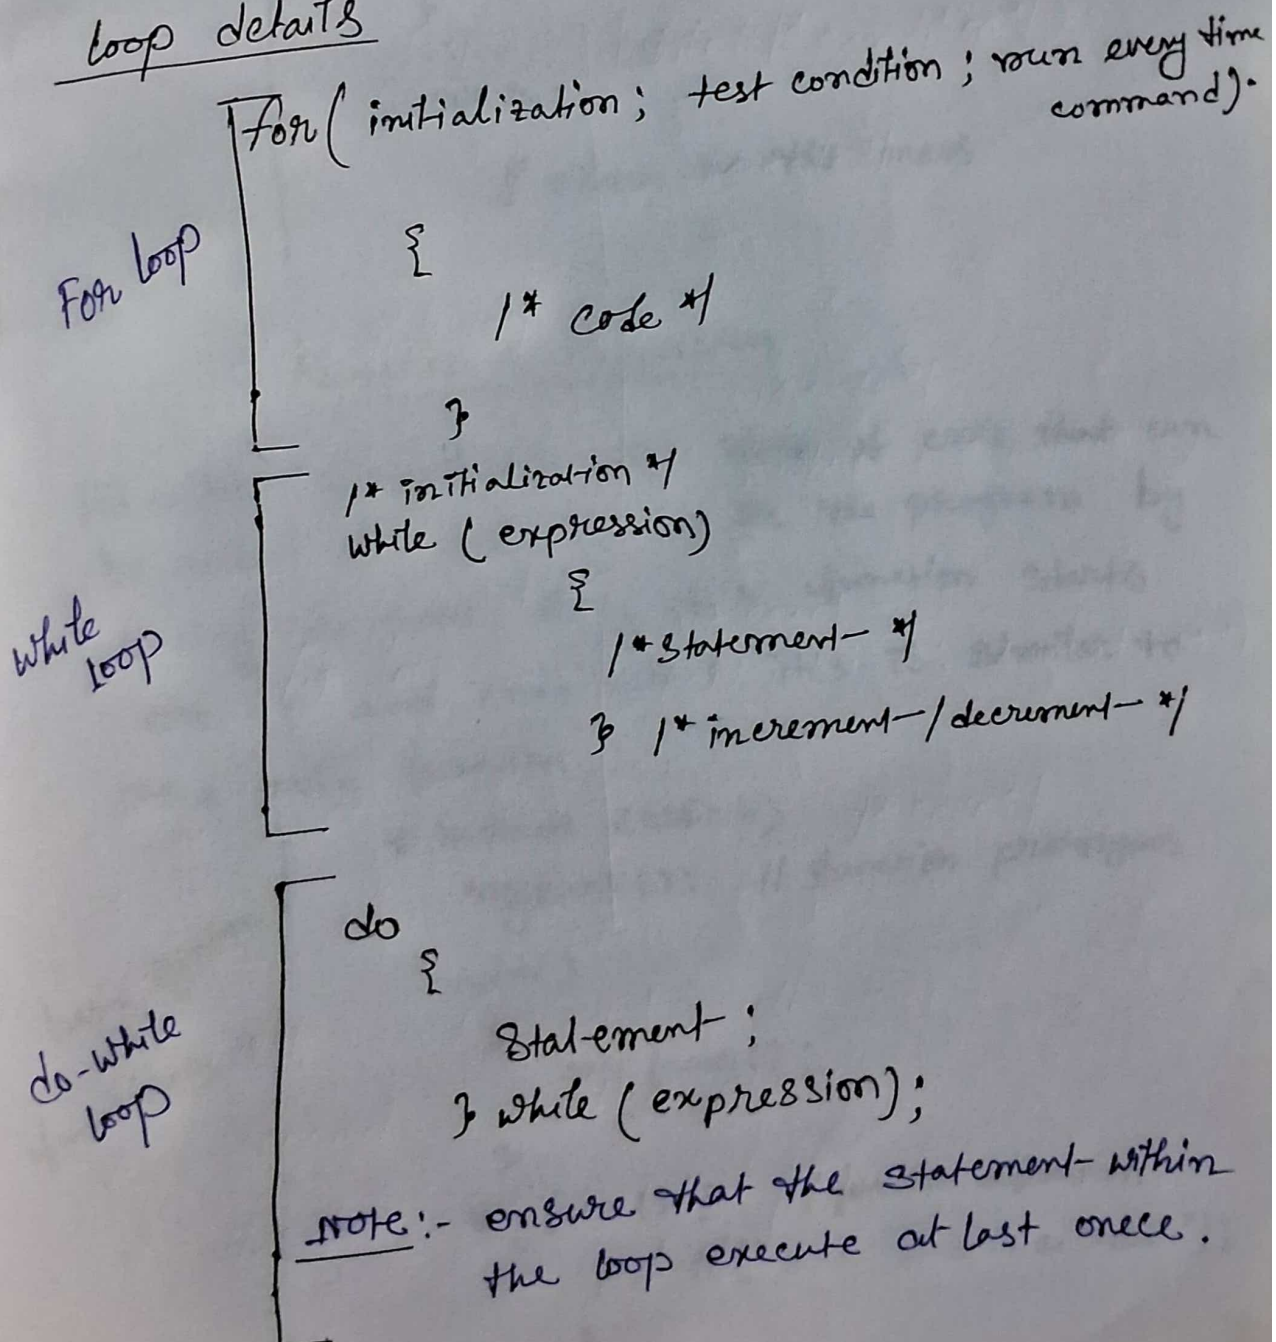 loop details
for ( initialization; test condition ; run every time
command).
For loop
{
/* code */
}
/* initialization */
while ( expression)
{
/* statement */
} /* increment / decrement */
while
loop
do
{
Statement ;
} while ( expression) ;
do-while
loop
Note :- ensure that the statement within
the loop execute at last onece .